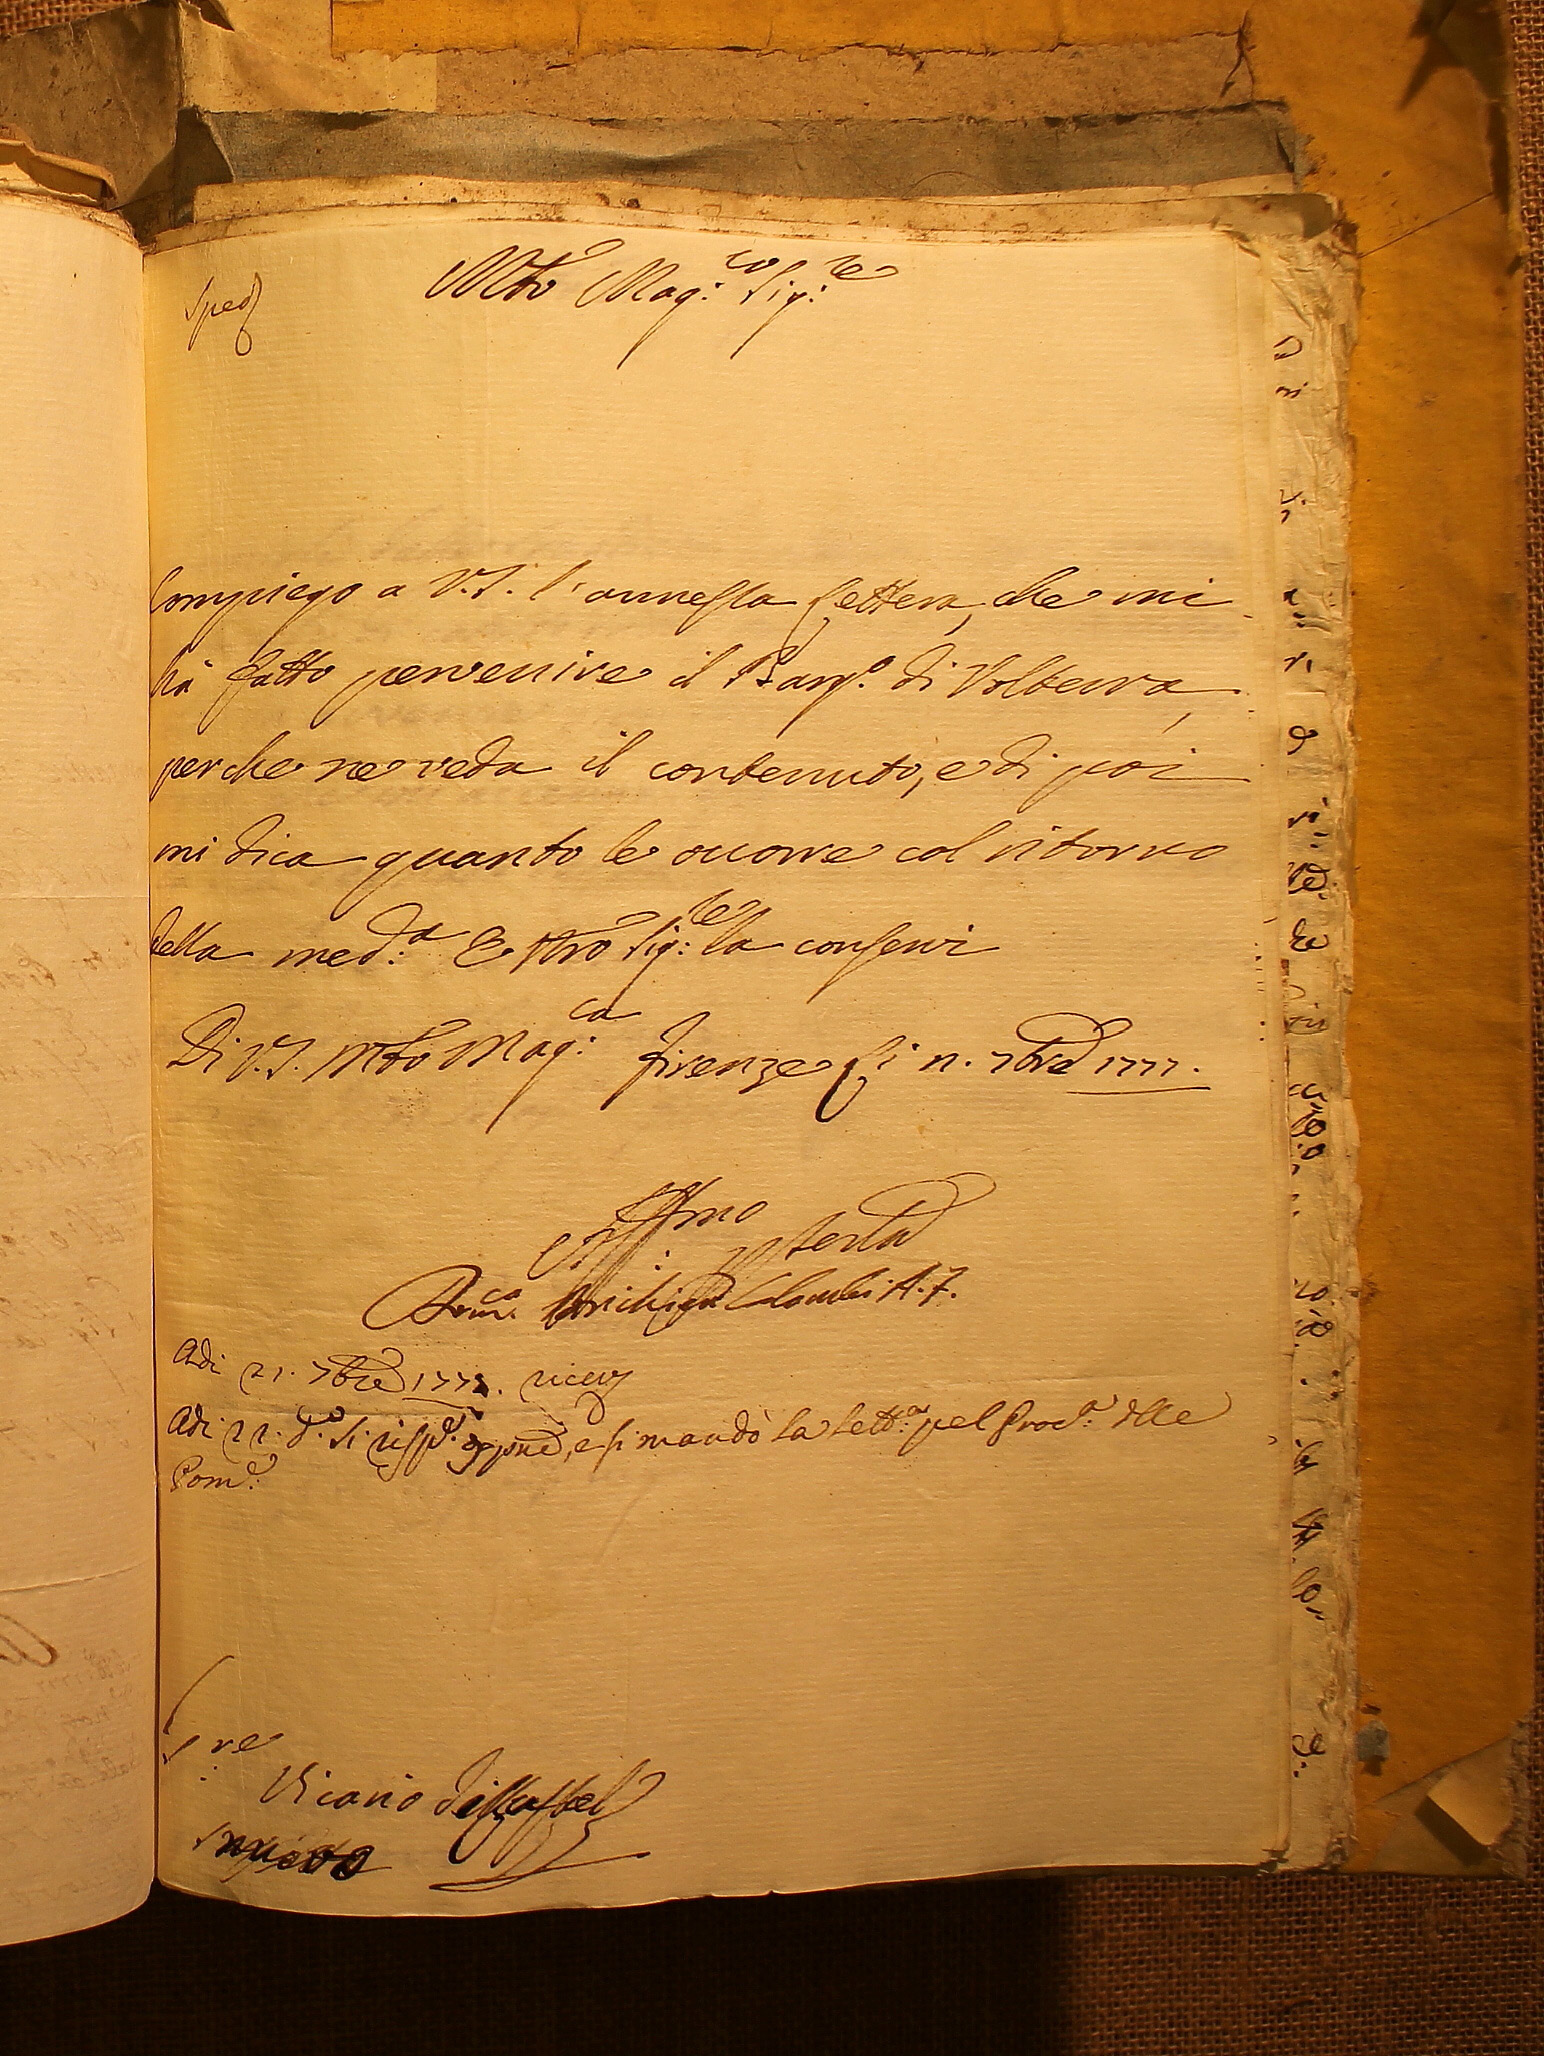 Sped
Mto Mag:co Sig:re
Compiego a V.S. l'annessa Lettera, che mi
hà fatto pervenire il Barg.o di Volterra,
perche ne veda il contenuto, e di poi
mi dica quanto le occorre col ritorno
della med:a E Nro Sig:re la conservi
Di V.S. Mto Mag:ca Firenze li 11. 7bre 1777.
Aff:mo
A. F.
Adi 21. 7bre 1777. ricev
Adi 22. d.o Si risp.e, e si mandò la lett.a pel Proc.o dlle
Com.e
S.re
Vicario di